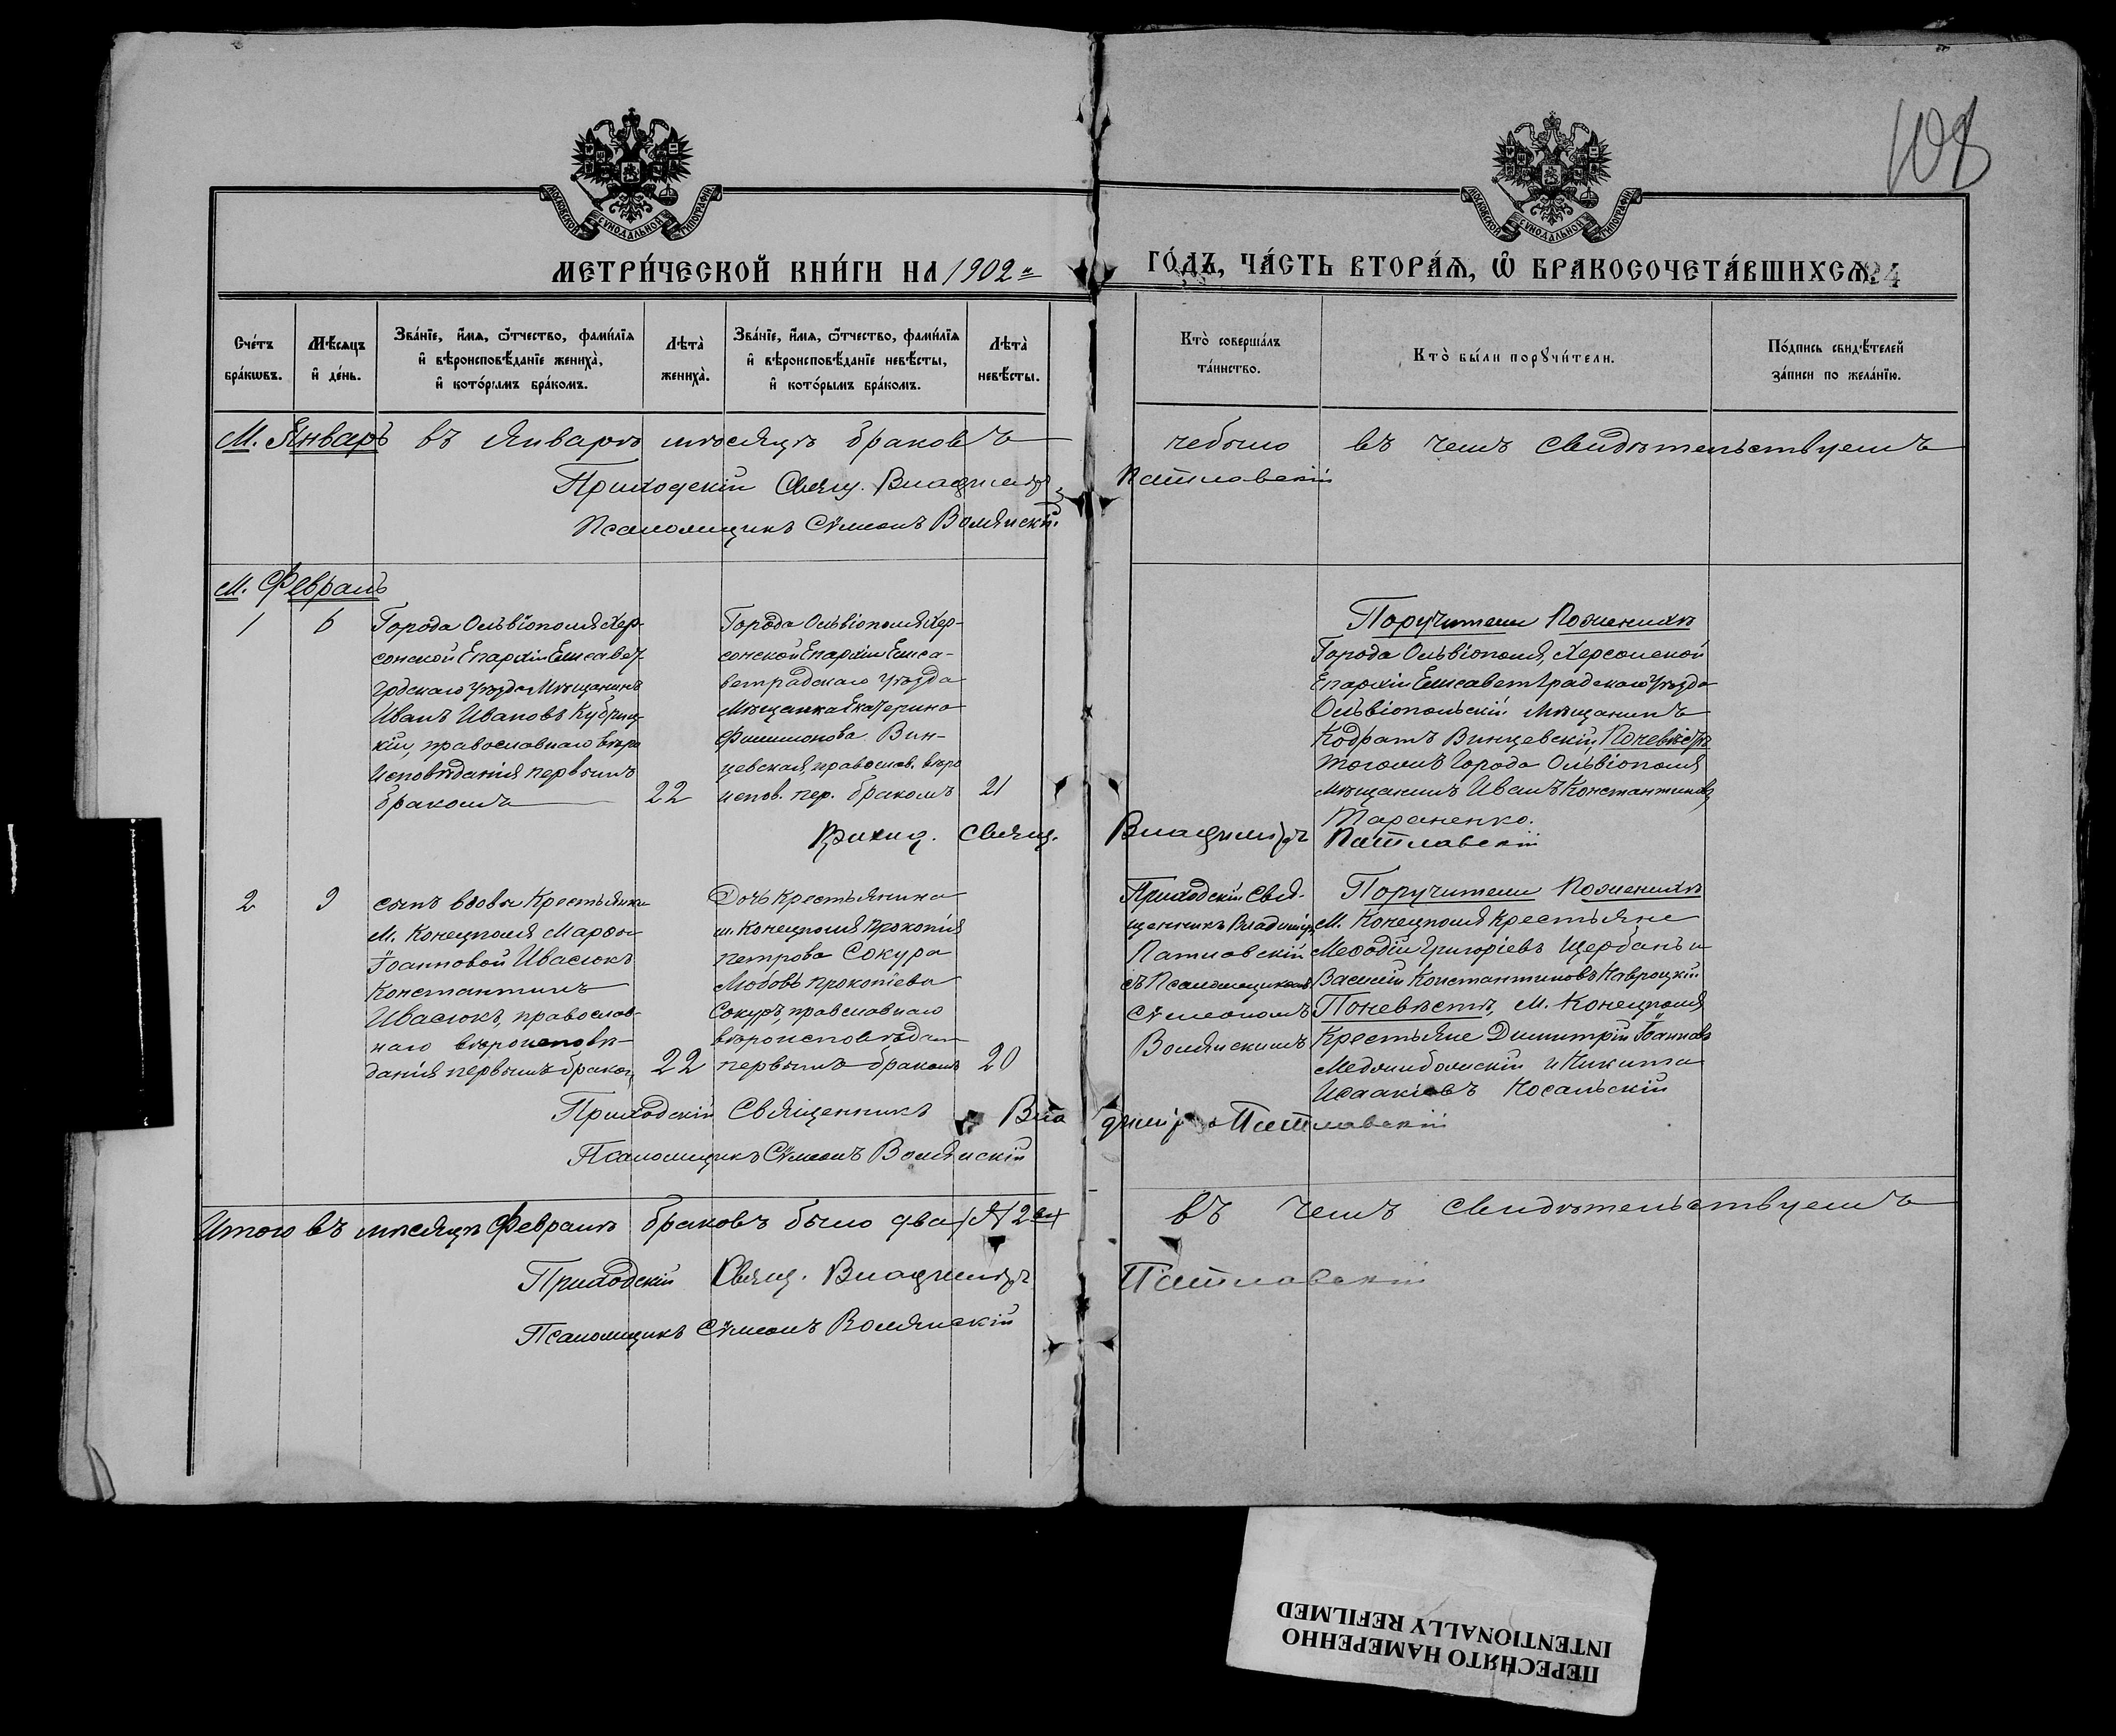 108
МОСКОВСКОЙ СѴНОДАЛЬНОЙ ТИПОГРАФІИ
МОСКОВСКОЙ СѴНОДАЛЬНОЙ ТИПОГРАФІИ
МЕТРИ́ЧЕСКОЙ КНИ́ГИ НА 1902 й ГО́ДЪ, ЧА́СТЬ ВТОРА́Ѧ, Ѽ БРАКОСОЧЕТА́ВШИХСѦ.
Сче́тъ бра́кѡвъ.
Мѣ́сѧцъ и҆ де́нь.
Зва́нїе, и҆́мѧ, ѻ҆́тчество, фами́лїѧ и҆ вѣроисповѣ́данїе жениха̀, и҆ кото́рымъ бра́комъ.
Лѣта̀ жениха̀.
Зва́нїе, и҆́мѧ, ѻ҆́тчество, фами́лїѧ и҆ вѣроисповѣ́данїе невѣ́сты, и҆ кото́рымъ бра́комъ.
Лѣта̀ невѣ́сты.
Кто̀ соверша́лъ та́инство.
Кто̀ бы́ли порꙋчи́тели.
По́дпись свидѣ́телей за́писи по жела́нїю.
М. Январь въ Январѣ мѣсяцѣ браковъ небыло въ чемъ свидѣтельствуемъ
Приходскій Свящ. Владиміръ Патлавскій
Псаломщикъ Сѵмеонъ Волянскій
М. Февраль
1 6
Города Ольвіополя Хер-
сонской Епархіи Елисавет-
градскаго уѣзда Мѣщанинъ
Иванъ Ивановъ Кубриц-
кій, православнаго вѣро
исповѣданія первымъ
бракомъ
22
Города Ольвіополя Хер-
сонской Епархіи Елиса-
ветградскаго уѣзда
Мѣщанка Екатерина
Филимонова Вин-
цевская, православ. вѣро
испов. пер. бракомъ
21
Поручители Поженихѣ
Города Ольвіополя, Херсонской
Епархіи Елисаветградскаго уѣзда
Ольвіопольскій Мѣщанинъ
Кодратъ Винцевскій, Поневѣстѣ
тогожъ Города Ольвіополя
мѣщанинъ Иванъ Константиновъ
Тараненко.
Приход. Свящ. Владиміръ Патлавскій
2 9
сынъ вдовы Крестьянки
М. Конецполя Марѳы
Іоанновой Ивасюкъ
Константинъ
Ивасюкъ, православ-
наго вѣроисповѣ-
данія первымъ бракомъ
22
Дочь Крестьянина
м. Конецполя Прокопія
Петрова Сокура
Любовь Прокопіева
Сокуръ, православнаго
вѣроисповѣдан
первымъ бракомъ
20
Приходскій Свя-
щенникъ Владиміръ
Патлавскій
съ Псаломщикомъ
Сѵмеономъ
Волянскимъ
Поручители Поженихѣ
М. Конецполя Крестьяне
Меѳодій Григоріевъ Щербань и
Василій Константиновъ Навроцкій
Поневѣстѣ, М. Конецполя
Крестьяне Димитрій Іоанновъ
Меджибожскій и Никита
Исаакіевъ Косальскій
Приходскій Священникъ Владиміръ Патлавскій
Псаломщикъ Сѵмеонъ Волянскій
Итого въ мѣсяцѣ Февралѣ браковъ было два въ чемъ свидѣтельствуемъ
Приходскій Свящ. Владиміръ Патлавскій
Псаломщикъ Сѵмеонъ Волянскій
ПЕРЕСНЯТО НАМЕРЕННО
INTENTIONALLY REFILMED